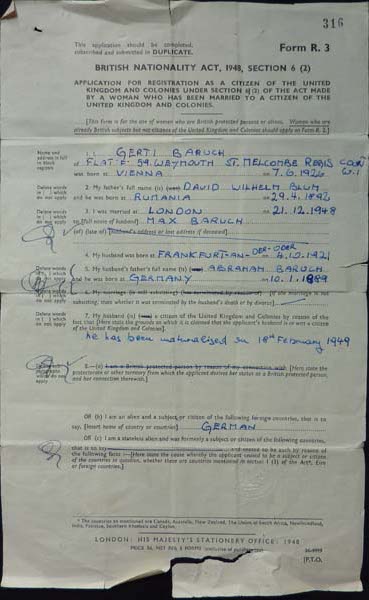 316
This application should be completed,
subscribed and submitted in DUPLICATE.
Form R. 3
BRITISH NATIONALITY ACT, 1948, SECTION 6 (2)
APPLICATION FOR REGISTRATION AS A CITIZEN OF THE UNITED
KINGDOM AND COLONIES UNDER SECTION 6(2) OF THE ACT MADE
BY A WOMAN WHO HAS BEEN MARRIED TO A CITIZEN OF THE
UNITED KINGDOM AND COLONIES.
[This form is for the use of women who are British protected persons or aliens. Women who are
already British subjects but not citizens of the United Kingdom and Colonies should apply on Form R. 2.]
Name and address in full in block capitals
1. I GERTI BARUCH
of FLAT F. 59. WEYMOUTH ST. MELCOMBE REGIS COURT W.1
was born at VIENNA on 7.6.1926
Delete words in [ ] which do not apply
2. My father's full name (is) (was) DAVID WILHELM BLUM
and he was born at RUMANIA on 29.4.1892
3. I was married at LONDON on 21.12.1948
to [full name of husband] MAX BARUCH
(of) (late of) [husband's address or last address if deceased]
4. My husband was born at FRANKFURT-AN-DER-ODER on 4.10.1921
Delete words in [ ] which do not apply
5. My husband's father's full name (is) (was) ABRAHAM BARUCH
and he was born at GERMANY on 10.1.1889
Delete words in [ ] which do not apply
6. My marriage (is still subsisting) (was terminated by [If the marriage is not
subsisting, state whether it was terminated by the husband's death or by divorce]
Delete words in [ ] which do not apply
7. My husband (is) a citizen of the United Kingdom and Colonies by reason of the
fact that [Here state the grounds on which it is claimed that the applicant's husband is or was a citizen
of the United Kingdom and Colonies].
he has been naturalised on 18th February 1949
8.—(a) I am a British protected person by reason of my connection with [Here state the
protectorate or other territory from which the applicant derives her status as a British protected person,
and her connection therewith.]
OR (b) I am an alien and a subject or citizen of the following foreign countries, that is to
say, [Insert name of country or countries] GERMAN
OR (c) I am a stateless alien and was formerly a subject or citizen of the following countries,
that is to say and ceased to be such by reason of
the following facts :—[Here state the cause whereby the applicant ceased to be a subject or citizen
of the countries in question, whether these are countries mentioned in section 1 (3) of the Act*, Eire
or foreign countries.]
* The countries so mentioned are Canada, Australia, New Zealand, The Union of South Africa, Newfoundland,
India, Pakistan, Southern Rhodesia and Ceylon.
LONDON: HIS MAJESTY'S STATIONERY OFFICE: 1948
[P.T.O.